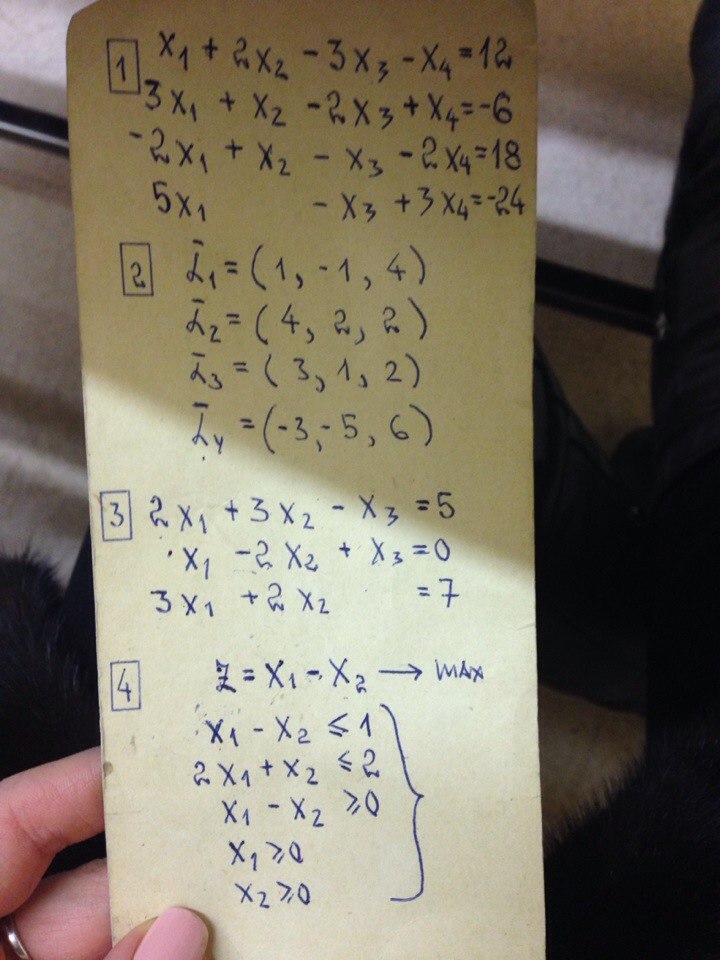 1 x₁ + 2x₂ - 3x₃ - x₄ = 12
3x₁ + x₂ - 2x₃ + x₄ = -6
-2x₁ + x₂ - x₃ - 2x₄ = 18
5x₁ - x₃ + 3x₄ = -24
2 L̄₁ = (1, -1, 4)
L̄₂ = (4, 2, 2)
L̄₃ = (3, 1, 2)
L̄₄ = (-3, -5, 6)
3 2x₁ + 3x₂ - x₃ = 5
x₁ - 2x₂ + x₃ = 0
3x₁ + 2x₂ = 7
4 Z = x₁ - x₂ → max
x₁ - x₂ ≤ 1
2x₁ + x₂ ≤ 2
x₁ - x₂ ≥ 0
x₁ ≥ 0
x₂ ≥ 0